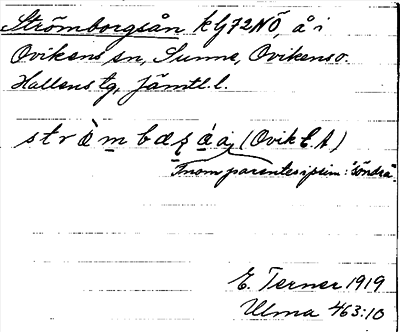 Strömborgsån k G72NÖ, å i
Ovikens sn, Sunne, Ovikens o.
Hallens tg, Jämtl. l.
(Ovik E.A)
Inom parentes ipsim: "Söndra"
E. Terner 1919
Ulma 463:10